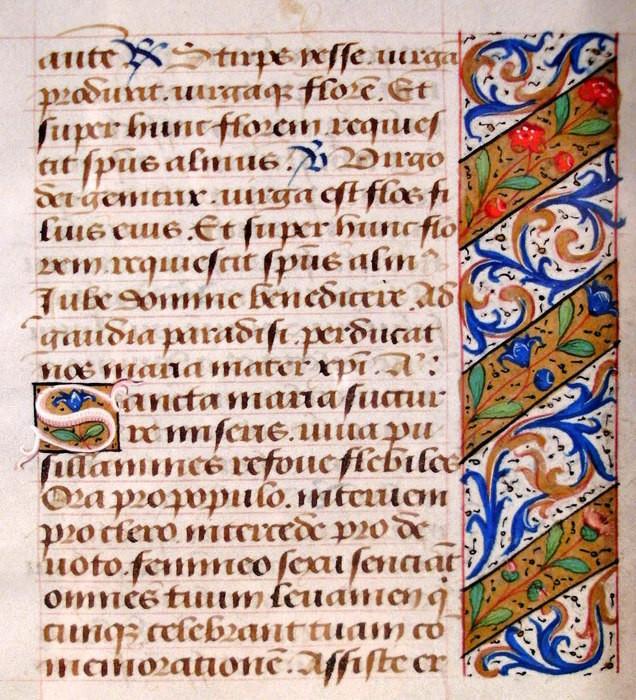 ante ℟ Stirps yesse. uirga
produxit. uirgaqꝫ florē. Et
super hunc florem. requies
cit spūs almus. ℣ Virgo
dei genitrix. uirga est flos fi
lius eius. Et super hunc flo
rem. requiescit spūs alm⁹
Iube domine benedicere. Ad
gaudia paradisi. perducat
nos maria mater xp̄i. A:
Sancta maria succur
re miseris. iuua pu
sillanimes refoue flebiles
Ora pro populo. interueni
pro clero. intercede pro de
uoto. femineo sexu senciāt
omnes tuum leuamen q̄
cunqꝫ celebrant tuam co
memorationē. Assiste ex